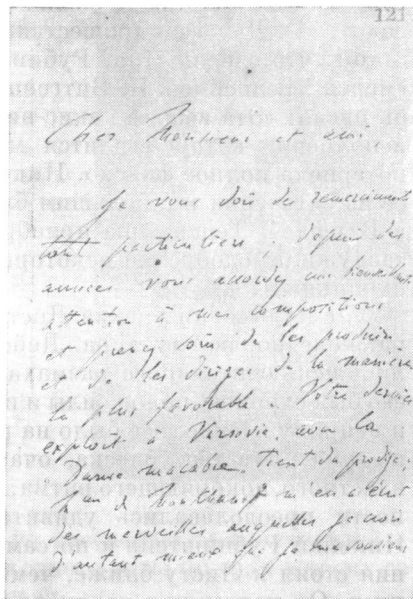 121
Cher Monsieur et ami
Je vous dois des remerciments
tout particuliers. Depuis des
années vous accordez une bienveillante
attention à mes compositions
et prenez soin de les produire
et de les diriger de la manière
la plus favorable. Votre dernier
exploit à Varsovie, avec la
Danse macabre, tient du prodige.
de m'en écrit
des merveilles auxquelles je crois
d'autant mieux que je me souviens